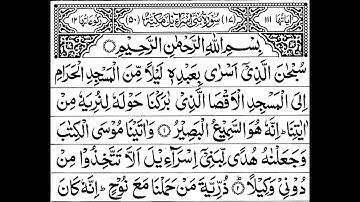 اٰیَاتُهَا ١١١ (١٧) سُوْرَةُ بَنِیْٓ اِسْرَآءِیْلَ مَكِّیَّةٌ (٥٠) رُكُوْعَاتُهَا ١٢
بِسْمِ اللّٰهِ الرَّحْمٰنِ الرَّحِیْمِ
سُبْحٰنَ الَّذِیْٓ اَسْرٰی بِعَبْدِهٖ لَیْلًا مِّنَ الْمَسْجِدِ الْحَرَامِ
اِلَی الْمَسْجِدِ الْاَقْصَا الَّذِیْ بٰرَكْنَا حَوْلَهٗ لِنُرِیَهٗ مِنْ
اٰیٰتِنَا ؕ اِنَّهٗ هُوَ السَّمِیْعُ الْبَصِیْرُ ۝١ وَاٰتَیْنَا مُوْسَی الْكِتٰبَ
وَجَعَلْنٰهُ هُدًی لِّبَنِیْٓ اِسْرَآءِیْلَ اَلَّا تَتَّخِذُوْا مِنْ
دُوْنِیْ وَكِیْلًا ۝٢ ذُرِّیَّةَ مَنْ حَمَلْنَا مَعَ نُوْحٍ ؕ اِنَّهٗ كَانَ